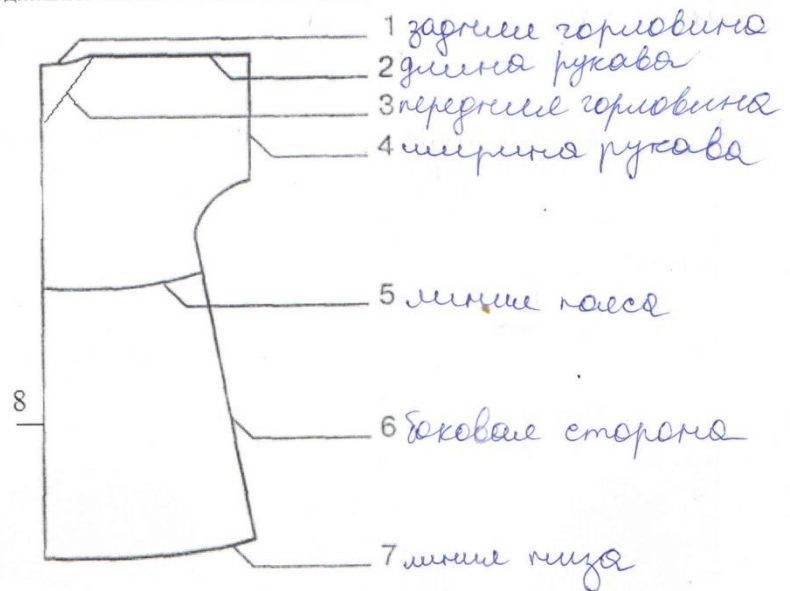 1 задняя горловина
2 длина рукава
3 передняя горловина
4 ширина рукава
5 линия пояса
8
6 боковая сторона
7 линия низа